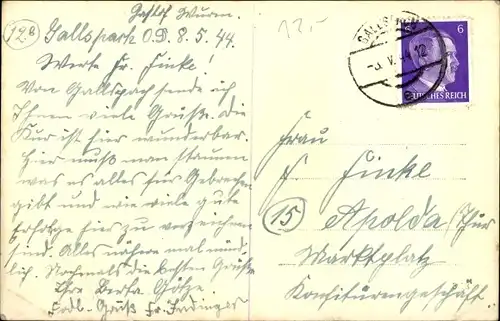 12,-
12b
Gasth. Wurm.
Gallspach O.D. 8.5.44.
Werte Fr. Finke!
Von Gallspach sende ich
Ihnen viele Grüße. Die
Kur ist hier wunderbar.
Hier muß man staunen
was es alles für Gebrechen
gibt und wie viele gute
Erfolge hier zu verzeichnen
sind. Alles nähere mal münd-
lich. Nochmals die besten Grüße
Ihre Berta Götze
Frdl. Gruß Fr.
GALLSPACH
12
6
DEUTSCHES REICH
Frau
F. Finke
15 Apolda/Thür
Marktplatz
Konfitürengeschäft.